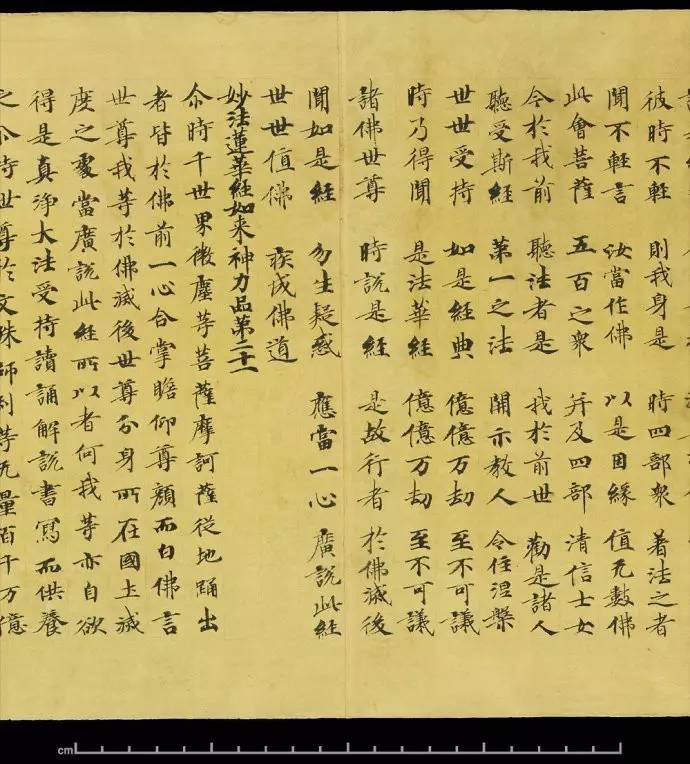 彼時不輕 則我身是 時四部衆 著法之者
聞不輕言 汝當作佛 以是因緣 值无數佛
此會菩薩 五百之衆 并及四部 清信士女
今於我前 聽法者是 我於前世 勸是諸人
聽受斯經 第一之法 開示教人 令住涅槃
世世受持 如是經典 億億万劫 至不可議
時乃得聞 是法華經 億億万劫 至不可議
諸佛世尊 時說是經 是故行者 於佛滅後
聞如是經 勿生疑惑 應當一心 廣說此經
世世值佛 疾成佛道
妙法蓮華經如来神力品第二十一
尒時千世界微塵等菩薩摩訶薩從地踊出
者皆於佛前一心合掌瞻仰尊顏而白佛言
世尊我等於佛滅後世尊分身所在國土滅
度之處當廣說此經所以者何我等亦自欲
得是真淨大法受持讀誦解說書寫而供養
之尒時世尊於文殊師利等无量百千万億
cm